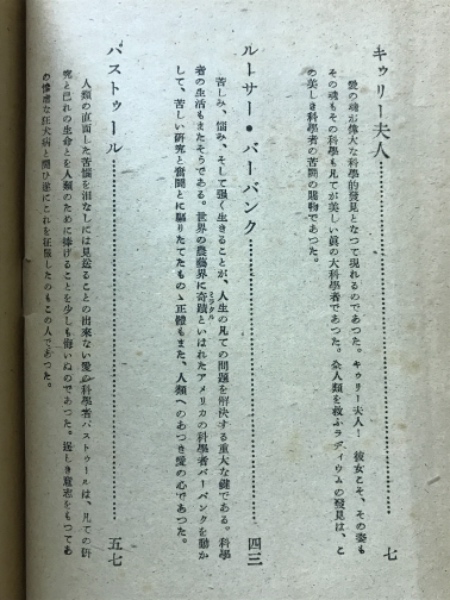 キゥリー夫人……………………七
愛の魂が偉大な科學的發見となつて現れるのであつた。キゥリー夫人！　彼女こそ、その姿も
その魂もその科學も凡てが美しい眞の大科學者であつた。全人類を救ふラディウムの發見は、こ
の美しき科學者の苦鬪の賜物であつた。
ルーサー・バーバンク……………………四三
苦しみ、惱み、そして强く生きることが、人生の凡ての問題を解決する重大な鍵である。科學
者の生活もまたそうである。世界の農藝界に奇蹟といはれたアメリカの科學者バーバンクを動か
して、苦しい硏究と奮鬪とに驅りたてたものゝ正體もまた、人類へのあつき愛の心であつた。
パストゥール……………………五七
人類の直面した苦惱を淚なしには見送ることの出來ない愛の科學者パストゥールは、凡ての硏
究と己れの生命とを人類のために捧げることを少しも悔いぬのであつた。逞しき意志をもつてあ
の慘虐な狂犬病と鬪ひ遂にこれを征服したのもこの人であつた。